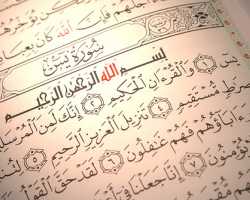 يُؤَخِّرُهُمْ
أَجَلُهُمْ فَإِنَّ ٱللَّهَ كَانَ
سُورَةُ يسٓ
بِسْمِ ٱللَّهِ ٱلرَّحْمَٰنِ ٱلرَّحِيمِ
يسٓ ١ وَٱلْقُرْءَانِ ٱلْحَكِيمِ ٢ إِنَّكَ لَمِنَ
صِرَٰطٍ مُّسْتَقِيمٍ ٤ تَنزِيلَ ٱلْعَزِيزِ ٱلرَّحِيمِ ٥
ءَابَآؤُهُمْ فَهُمْ غَٰفِلُونَ ٦ لَقَدْ حَقَّ ٱلْقَوْلُ
يُؤْمِنُونَ ٧ إِنَّا جَعَلْنَا فِىٓ